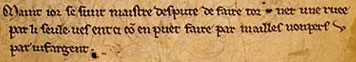 Maint ior se sunt maistre despute de faire tor ner une ruee
par li seule ves ent ci cō en puet faire par mailles nonpers
par uifargent.